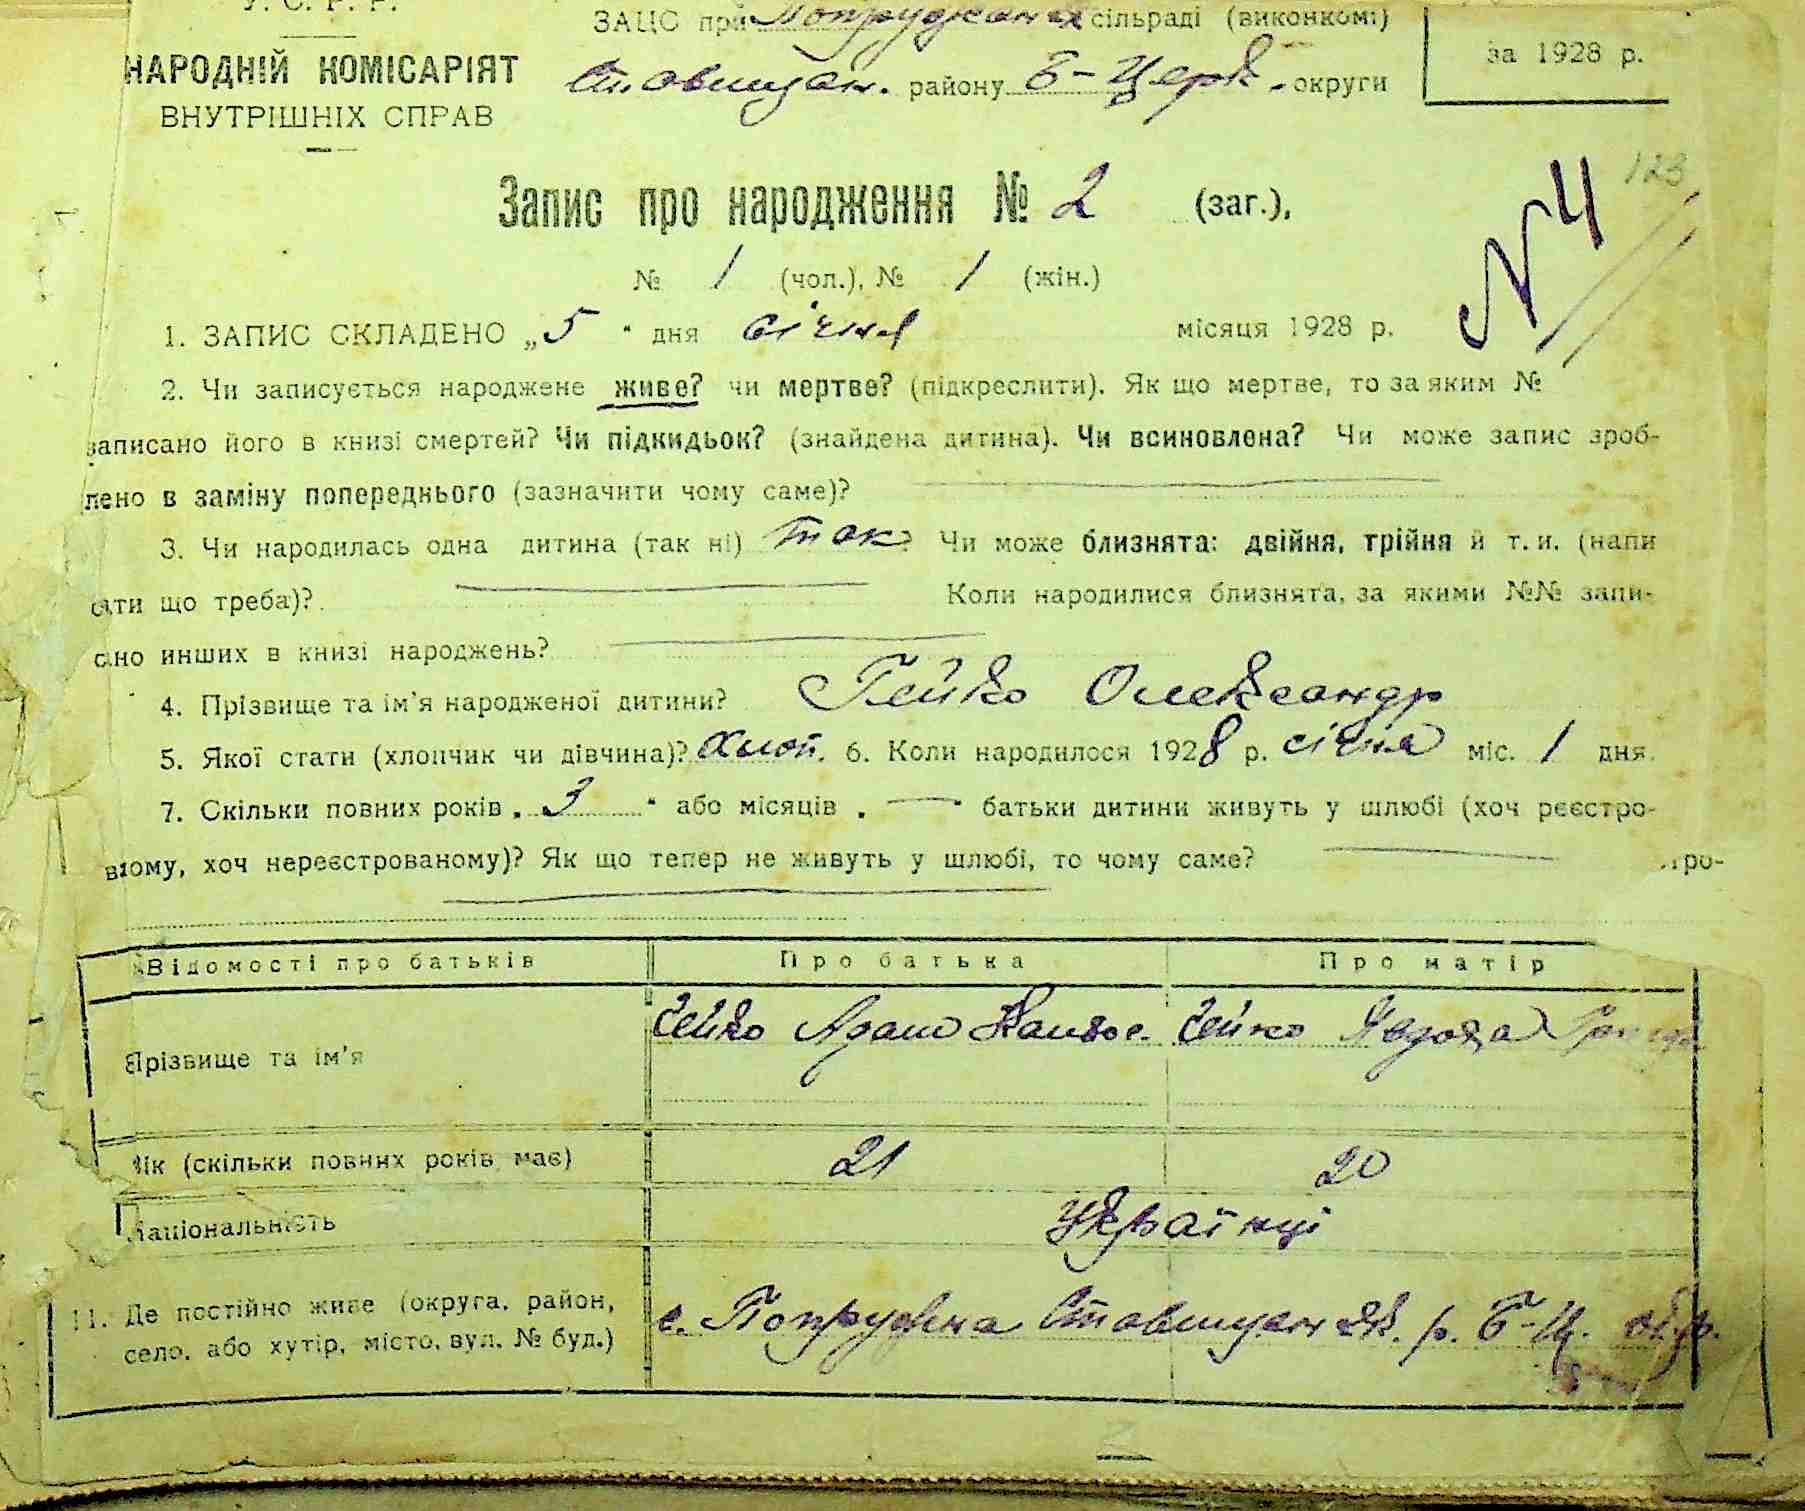 У. С. Р. Р.
НАРОДНІЙ КОМІСАРІЯТ
ВНУТРІШНІХ СПРАВ
ЗАЦС при Попружанск сільраді (виконкомі)
Ставищан. району Б-Церк. округи
за 1928 р.
123
№ 4
Запис про народження № 2 (заг.),
№ 1 (чол.), № 1 (жін.)
1. ЗАПИС СКЛАДЕНО „5“ дня січня місяця 1928 р.
2. Чи записується народжене живе? чи мертве? (підкреслити). Як що мертве, то за яким №
записано його в книзі смертей? Чи підкидьок? (знайдена дитина). Чи всиновлена? Чи може запис зроб-
лено в заміну попереднього (зазначити чому саме)?
3. Чи народилась одна дитина (так ні) так Чи може близнята: двійня, трійня й т. и. (напи
сати що треба)? Коли народилися близнята, за якими №№ запи-
сано инших в книзі народжень?
4. Прізвище та ім'я народженої дитини? Гейко Олександр
5. Якої стати (хлопчик чи дівчина)? хлоп. 6. Коли народилося 1928 р. січня міс. 1 дня.
7. Скільки повних років „3“ або місяців „—“ батьки дитини живуть у шлюбі (хоч реєстро-
вному, хоч нереєстрованому)? Як що тепер не живуть у шлюбі, то чому саме?
Відомості про батьків Про батька Про матір
Прізвище та ім'я Гейко Адам Гейко Явдоха
Вік (скільки повних років має) 21 20
Національність Українці
11. Де постійно живе (округа, район,
село, або хутір, місто, вул. № буд.) с. Попружна Ставищанськ. р. Б-Ц. окр.